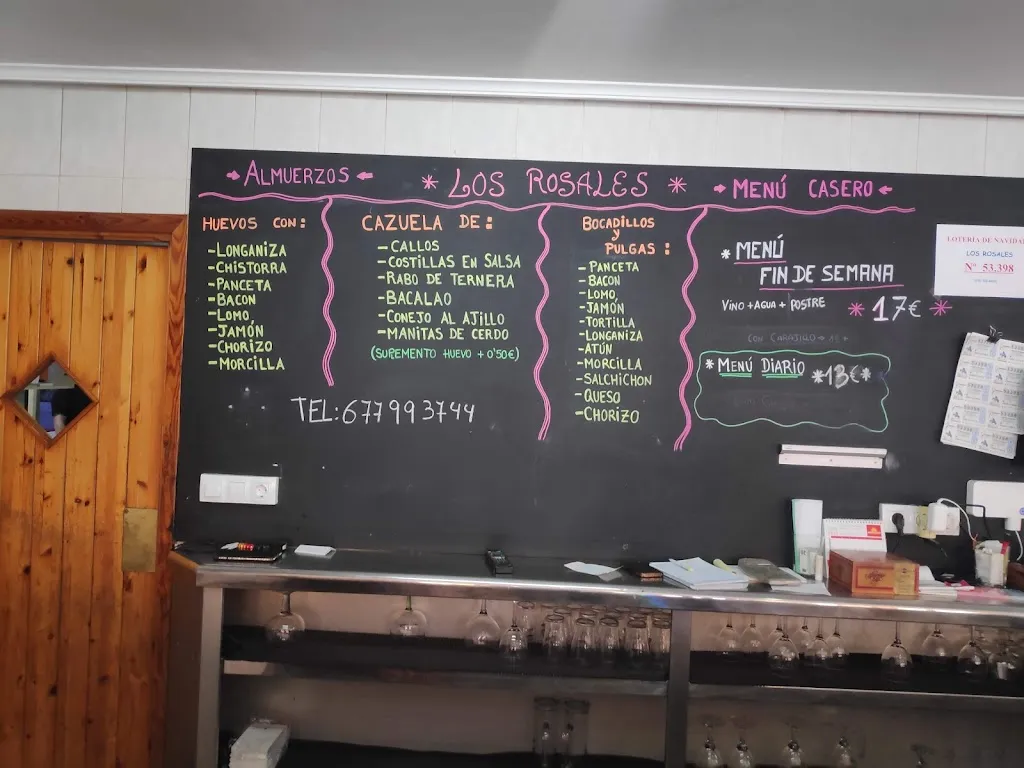 ALMUERZOS
* LOS ROSALES *
MENÚ CASERO
HUEVOS CON:
-LONGANIZA
-CHISTORRA
-PANCETA
-BACON
-LOMO
-JAMÓN
-CHORIZO
-MORCILLA
CAZUELA DE:
-CALLOS
-COSTILLAS EN SALSA
-RABO DE TERNERA
-BACALAO
-CONEJO AL AJILLO
-MANITAS DE CERDO
(SUPEMENTO HUEVO + 0'50€)
TEL:677993744
BOCADILLOS
y
PULGAS:
-PANCETA
-BACON
-LOMO
-JAMÓN
-TORTILLA
-LONGANIZA
-ATÚN
-MORCILLA
-SALCHICHON
-QUESO
-CHORIZO
* MENÚ
FIN DE SEMANA
VINO+AGUA+POSTRE
* 17€ *
* MENÚ DIARIO
*13€*
LOTERÍA DE NAVIDAD
LOS ROSALES
Nº 53.398